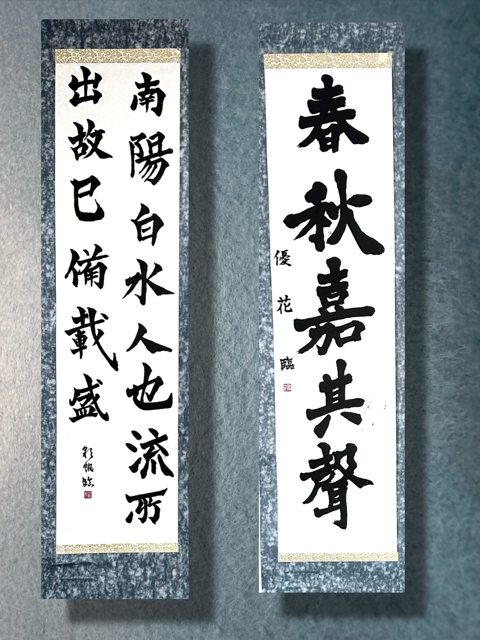 春秋嘉其聲
優花臨
南陽白水人也流所
出故已備載盛
臨